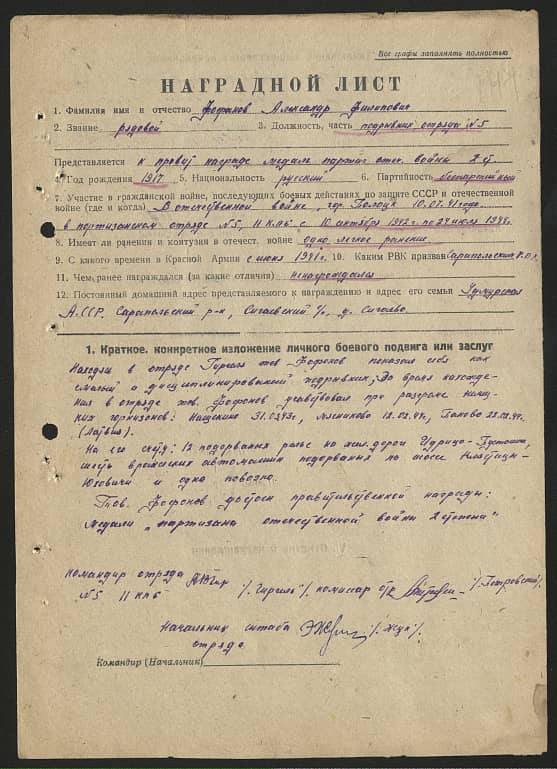 Все графы заполнять полностью
НАГРАДНОЙ ЛИСТ
1. Фамилия имя и отчество Фофонов Александр Филипович
2. Звание рядовой 3. Должность, часть подрывник отряда №5
Представляется к правит награде медаль партиз отеч. войны 2 ст.
4. Год рождения 1917 5. Национальность русский 6. Партийность беспартийный
7. Участие в гражданской войне, последующих боевых действиях по защите СССР и отечественной
войне (где и когда) В отечественной войне, гор. Полоцк 10.07.41 года
в партизанском отряде №5, II КЛПБ с 10 октября 1942 г. по 24 июля 1944г.
8. Имеет ли ранения и контузия в отечест. войне одно легкое ранение
9. С какого времени в Красной Армии с июня 1941г. 10. Каким РВК призван Сарапольским Р.В.К.
11. Чем ранее награждался (за какие отличия) ненаграждался
12. Постоянный домашний адрес представляемого к награждению и адрес его семьи Удмурская
А.ССР. Сарапольский р-н, Сигаевский с/с, д. Сигаево
1. Краткое, конкретное изложение личного боевого подвига или заслуг
Находясь в отряде тов Фофонов показал себя как
смелый и дисциплинированый подрывник; За время нахожде-
ния в отряде тов. Фофонов участвовал при разгроме немец-
ких горнизонов: 31.0243г., Мясниково 12.02.44г, 22.02.44г.
(Латвия).
На его счету: 12 подорваных рельс на жел. дороги Идрица-Пустошка,
шесть вражеских автомашин подорваных на шоссе Клястицы-
Юховичи и одна повозка.
Тов. Фофонов достоин правительственной награды:
медали „партизана отечественной войны 2 степени"
Командир отряда комиссар о/р /Петровский/
№5 II КЛПБ
Начальник штаба
отряда
Командир (Начальник)